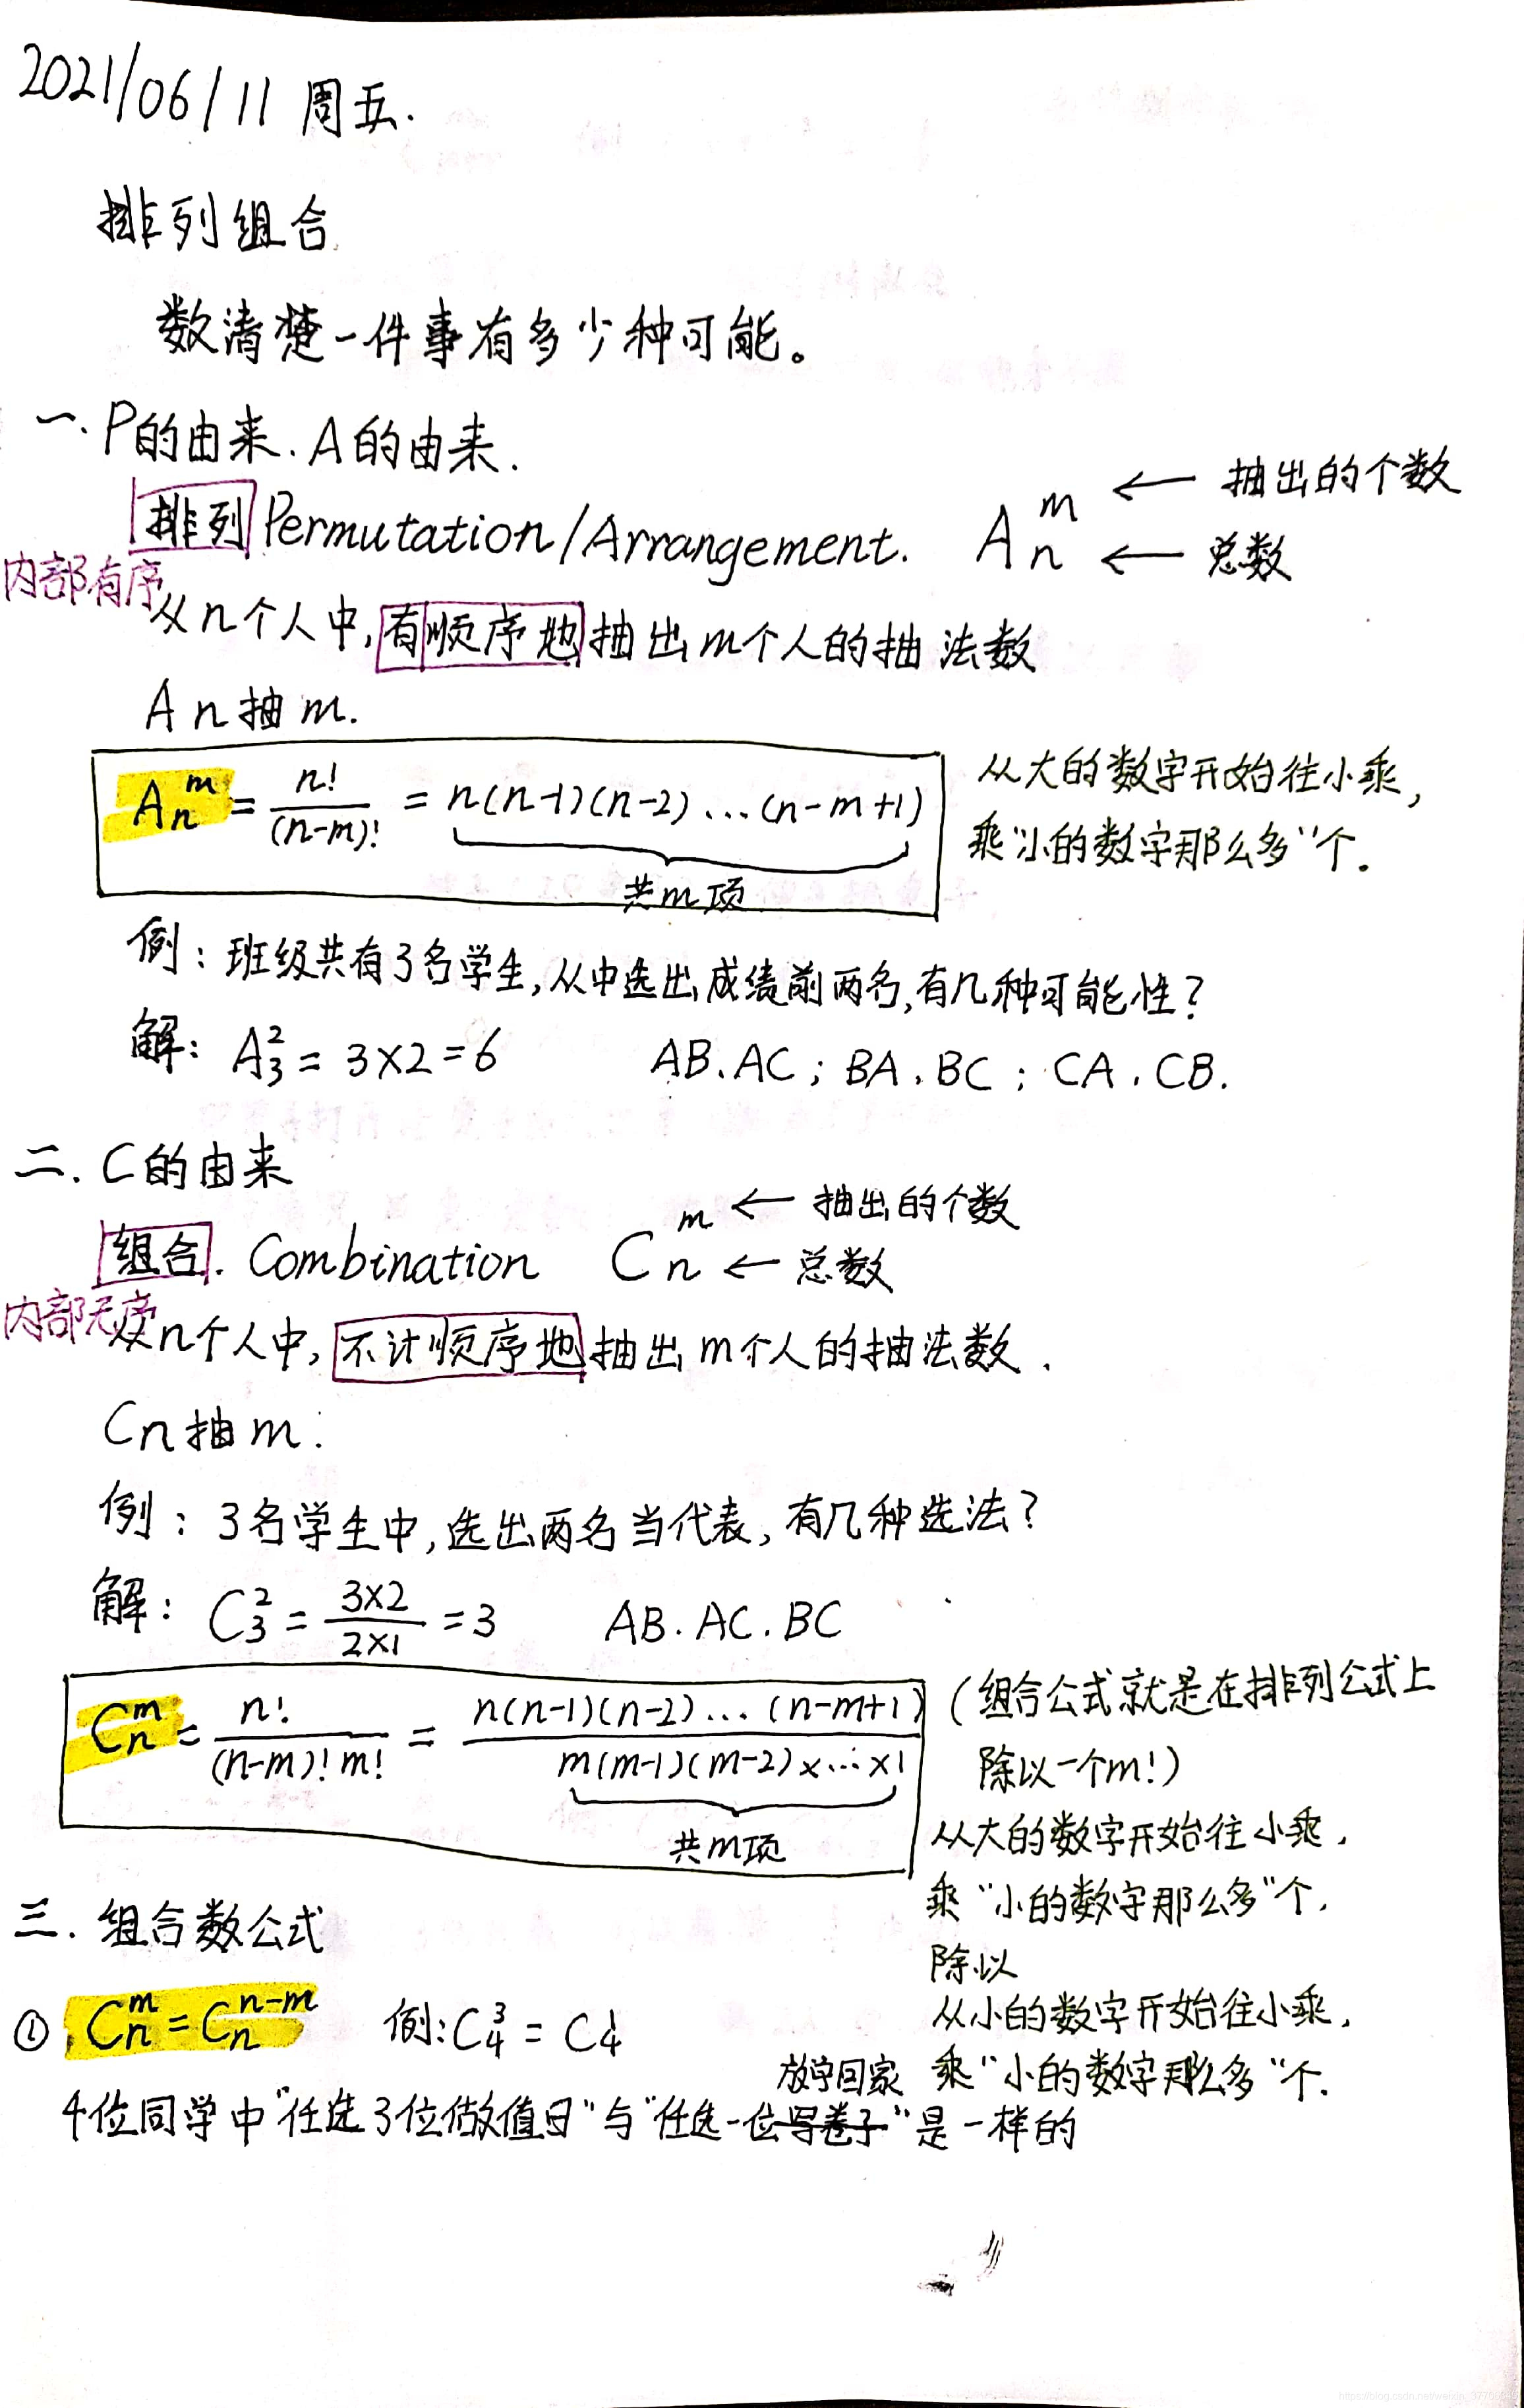 2021/06/11 周五.
排列组合
数清楚一件事有多少种可能。
一. P的由来. A的由来.
排列 Permutation/Arrangement. A_n^m ← 抽出的个数
← 总数
内部有序
从n个人中,有顺序地抽出m个人的抽法数
A n抽m.
A_n^m = n!/(n-m)! = n(n-1)(n-2)...(n-m+1)
共m项
从大的数字开始往小乘,
乘"小的数字那么多"个.
例: 班级共有3名学生,从中选出成绩前两名,有几种可能性?
解: A_3^2 = 3×2 = 6 AB.AC; BA.BC; CA.CB.
二. C的由来
组合. Combination C_n^m ← 抽出的个数
← 总数
内部无序
从n个人中,不计顺序地抽出m个人的抽法数.
Cn抽m.
例: 3名学生中,选出两名当代表,有几种选法?
解: C_3^2 = 3×2/2×1 = 3 AB.AC.BC
C_n^m = n!/(n-m)!m! = n(n-1)(n-2)...(n-m+1)/m(m-1)(m-2)×...×1
共m项
(组合公式就是在排列公式上
除以一个m!)
从大的数字开始往小乘,
乘"小的数字那么多"个,
除以
从小的数字开始往小乘,
乘"小的数字那么多"个.
三. 组合数公式
① C_n^m = C_n^{n-m} 例: C_4^3 = C_4^1
放学回家
4位同学中"任选3位做值日"与"任选一位写卷子"是一样的